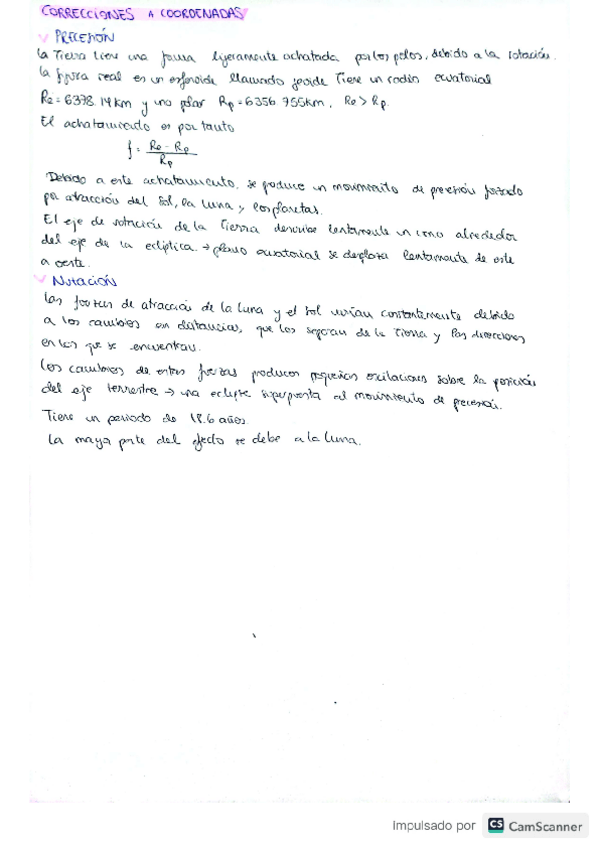 CORRECCIONES A COORDENADAS
PRECESIÓN
La Tierra tiene una forma ligeramente achatada por los polos, debido a la rotación.
La figura real es un esferoide llamado geoide Tiene un radio ecuatorial
Re = 6378.14 km y uno polar Rp = 6356.755 km, Re > Rp.
El achatamiento es por tanto
f = Re - Rp / Rp
Debido a este achatamiento, se produce un movimiento de precesión forzado
por atracción del Sol, la Luna y los planetas.
El eje de rotación de la Tierra describe lentamente un cono alrededor
del eje de la eclíptica → plano ecuatorial se desplaza lentamente de este
a oeste.
Nutación
Las fuerzas de atracción de la Luna y el Sol varían constantemente debido
a los cambios en distancias, que los separan de la Tierra y las direcciones
en las que se encuentran.
Los cambios de estas fuerzas producen pequeñas oscilaciones sobre la posición
del eje terrestre → una eclipse superpuesta al movimiento de precesión.
Tiene un periodo de 18.6 años.
La maya parte del efecto se debe a la Luna.
Impulsado por CS CamScanner